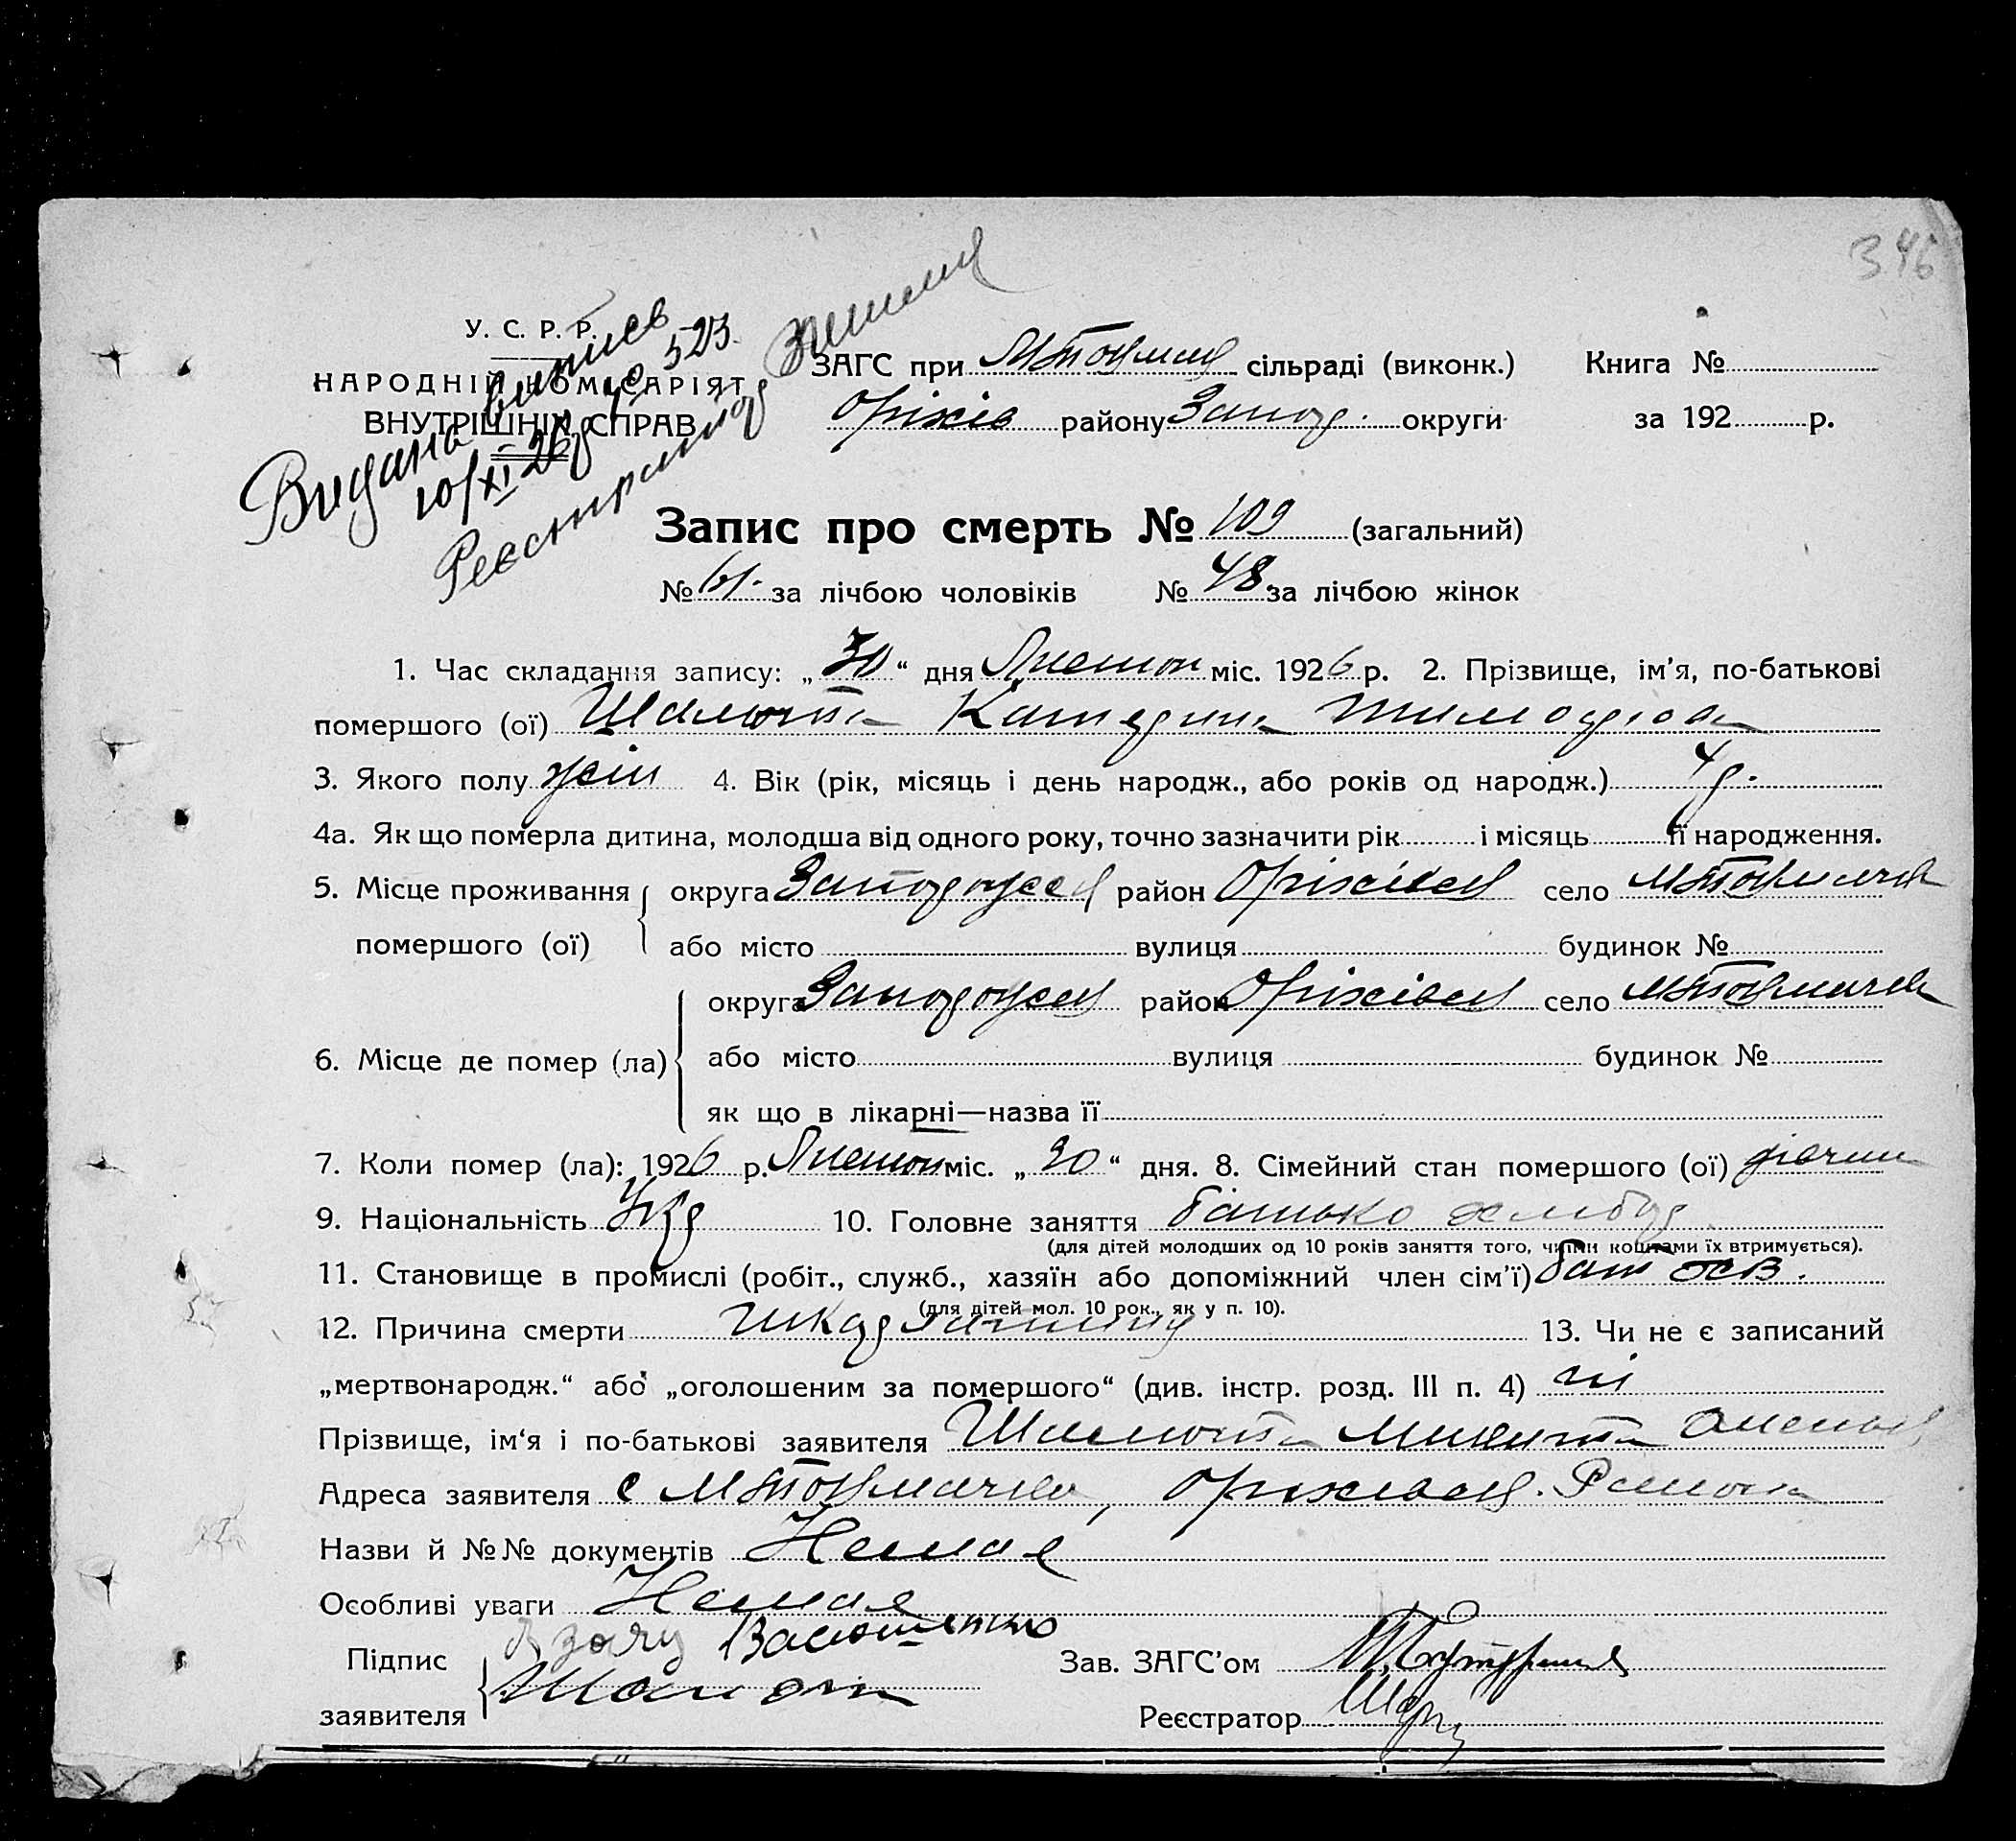 346
У. С. Р. Р.
НАРОДНІЙ КОМІСАРІЯТ
ВНУТРІШНІХ СПРАВ
Видано випись
10/XI 26р № 523.
Реєстратор
ЗАГС при М Токмац сільраді (виконк.) Книга №
Оріхів району Запор. округи за 192 р.
Запис про смерть № 109 (загальний)
№ 61. за лічбою чоловіків № 48 за лічбою жінок
1. Час складання запису: „30“ дня Листоп міс. 1926 р. 2. Прізвище, ім'я, по-батькові
помершого (ої) Шамота Катерина Тимофіова
3. Якого полу жін 4. Вік (рік, місяць і день народж., або років од народж.) 4 р.
4а. Як що померла дитина, молодша від одного року, точно зазначити рік і місяць її народження.
5. Місце проживання округа район село М Токмачка
помершого (ої) або місто вулиця будинок №
округа район Оріхівськ село М Токмачка
6. Місце де помер (ла) або місто вулиця будинок №
як що в лікарні—назва її
7. Коли помер (ла): 1926 р. Листоп міс. „30“ дня. 8. Сімейний стан помершого (ої) дівчин
9. Національність Укр 10. Головне заняття батько хлибор
(для дітей молодших од 10 років заняття того, чиїми коштами їх втримується).
11. Становище в промислі (робіт., служб., хазяїн або допоміжний член сім'ї) бат
(для дітей мол. 10 рок., як у п. 10).
12. Причина смерти 13. Чи не є записаний
„мертвонародж.“ або „оголошеним за помершого“ (див. інстр. розд. III п. 4) ні
Прізвище, ім'я і по-батькові заявителя Шамота Микита
Адреса заявителя с М Токмачка, Оріхівськ. Району
Назви й №№ документів Немає
Особливі уваги Немає
Підпис
заявителя Шамота
Зав. ЗАГС'ом
Реєстратор